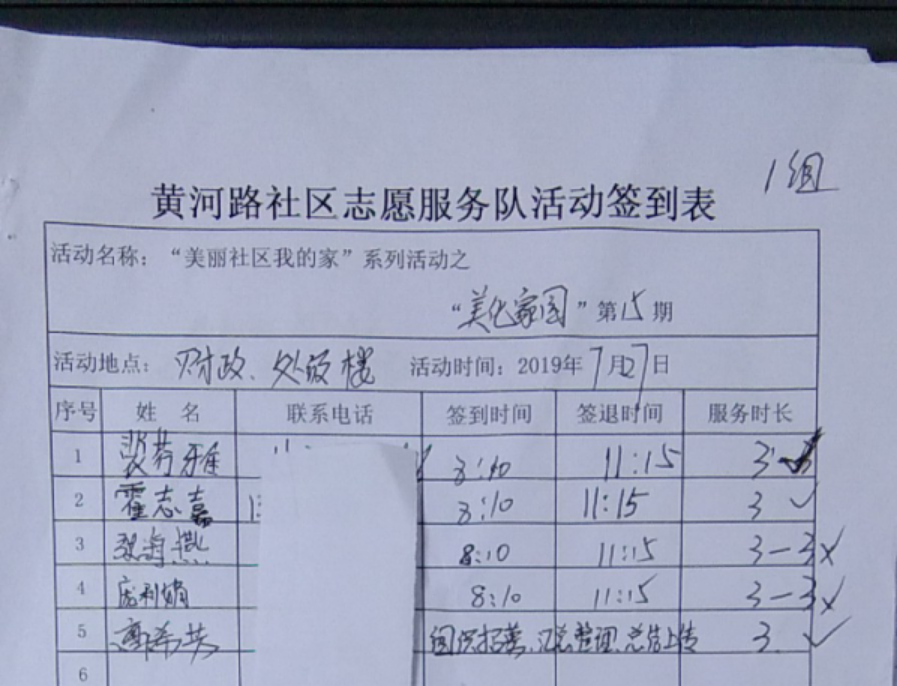 1组
黄河路社区志愿服务队活动签到表
活动名称：“美丽社区我的家”系列活动之
“美化家园”第15期
活动地点：财政、处级楼 活动时间：2019年7月27日
序号 姓 名 联系电话 签到时间 签退时间 服务时长
1 裴芬雅 8:10 11:15 3 ✓
2 霍志嘉 8:10 11:15 3 ✓
3 海燕 8:10 11:15 3-3 ×
4 庞利娟 8:10 11:15 3-3 ×
5 希 组织招募、汇总整理、总结上传 3 ✓
6